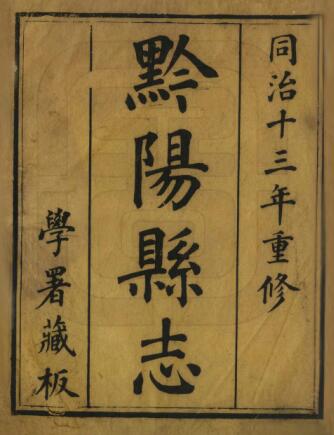 同治十三年重修
黔陽縣志
學署藏板